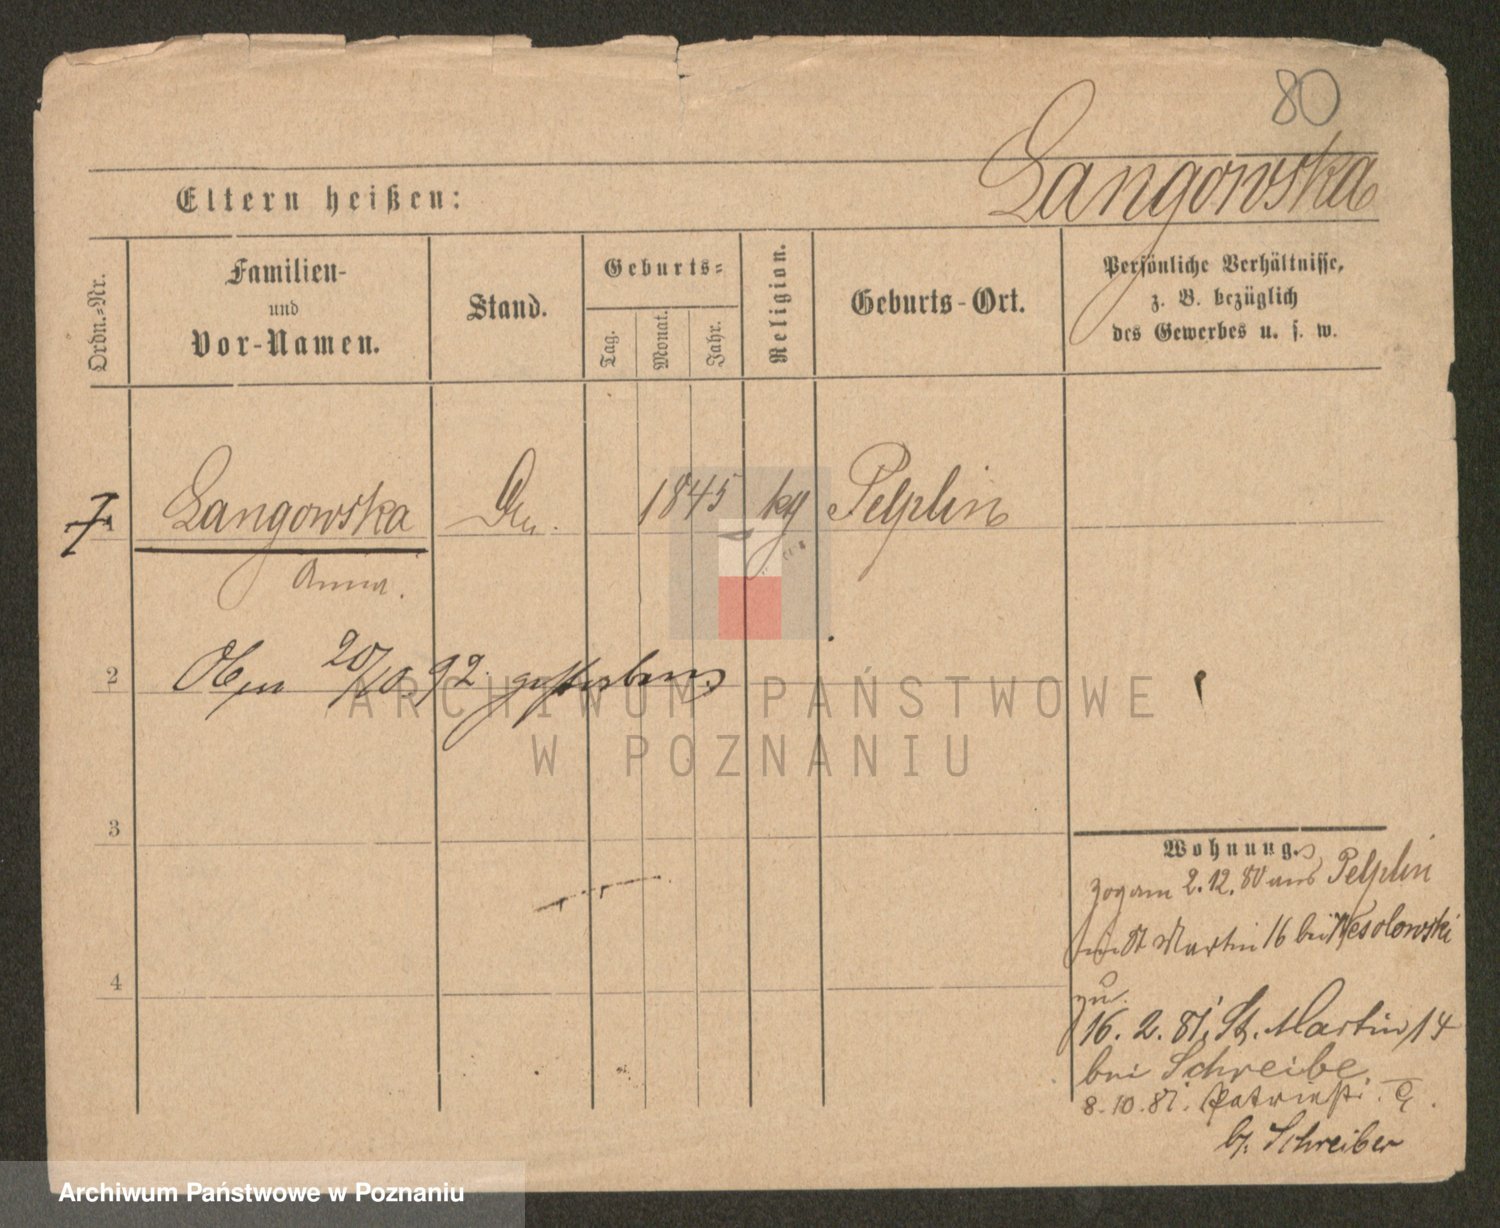 80
Langowska
Eltern heißen:
Ordn.-Nr.
Familien-
und
Vor-Namen.
Stand.
Geburts-
Tag.
Monat.
Jahr.
Religion.
Geburts-Ort.
Persönliche Verhältnisse,
z. B. bezüglich
des Gewerbes u. s. w.
1 Langowska 1845 Pelplin
Anna.
2 20/10.92. gestorben.
3
4
Wohnung.
zog am 2.12.80 aus Pelplin
St Martin 16 bei Wesolowski
zu.
16. 2. 81. St. Martin 14
bei Schreibe
8.10.81.
b/. Schreiber
ARCHIWUM PAŃSTWOWE
W POZNANIU
Archiwum Państwowe w Poznaniu